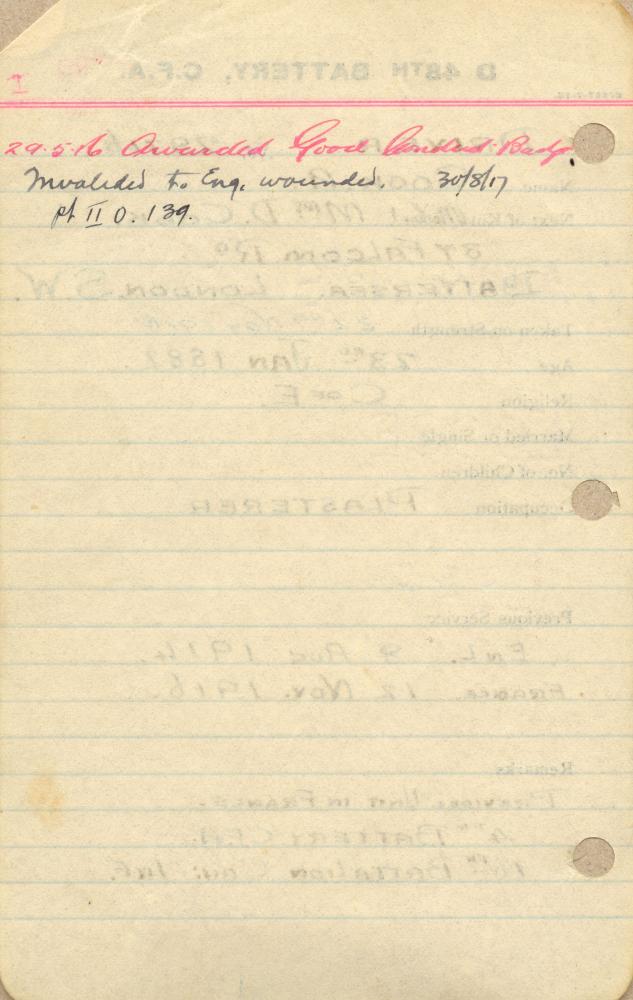 29.5.16 Awarded Good Conduct Badge
Invalided to Eng. wounded. 30/8/17
pt II O. 139.
D 48TH BATTERY, C.F.A.
Name
Next of Kin Mrs D.
37 Falcon Rd
BATTERSEA, LONDON. S.W.
Taken on Strength
Age 23rd Jan 1887.
Religion C of E.
Married or Single
No. of Children
Occupation PLASTERER
Previous Service
Enl. 9 Aug 1914.
France. 12 Nov. 1916.
Remarks
Previous Unit in France.
4th BATTERY C.F.A.
Battalion Can. Inf.